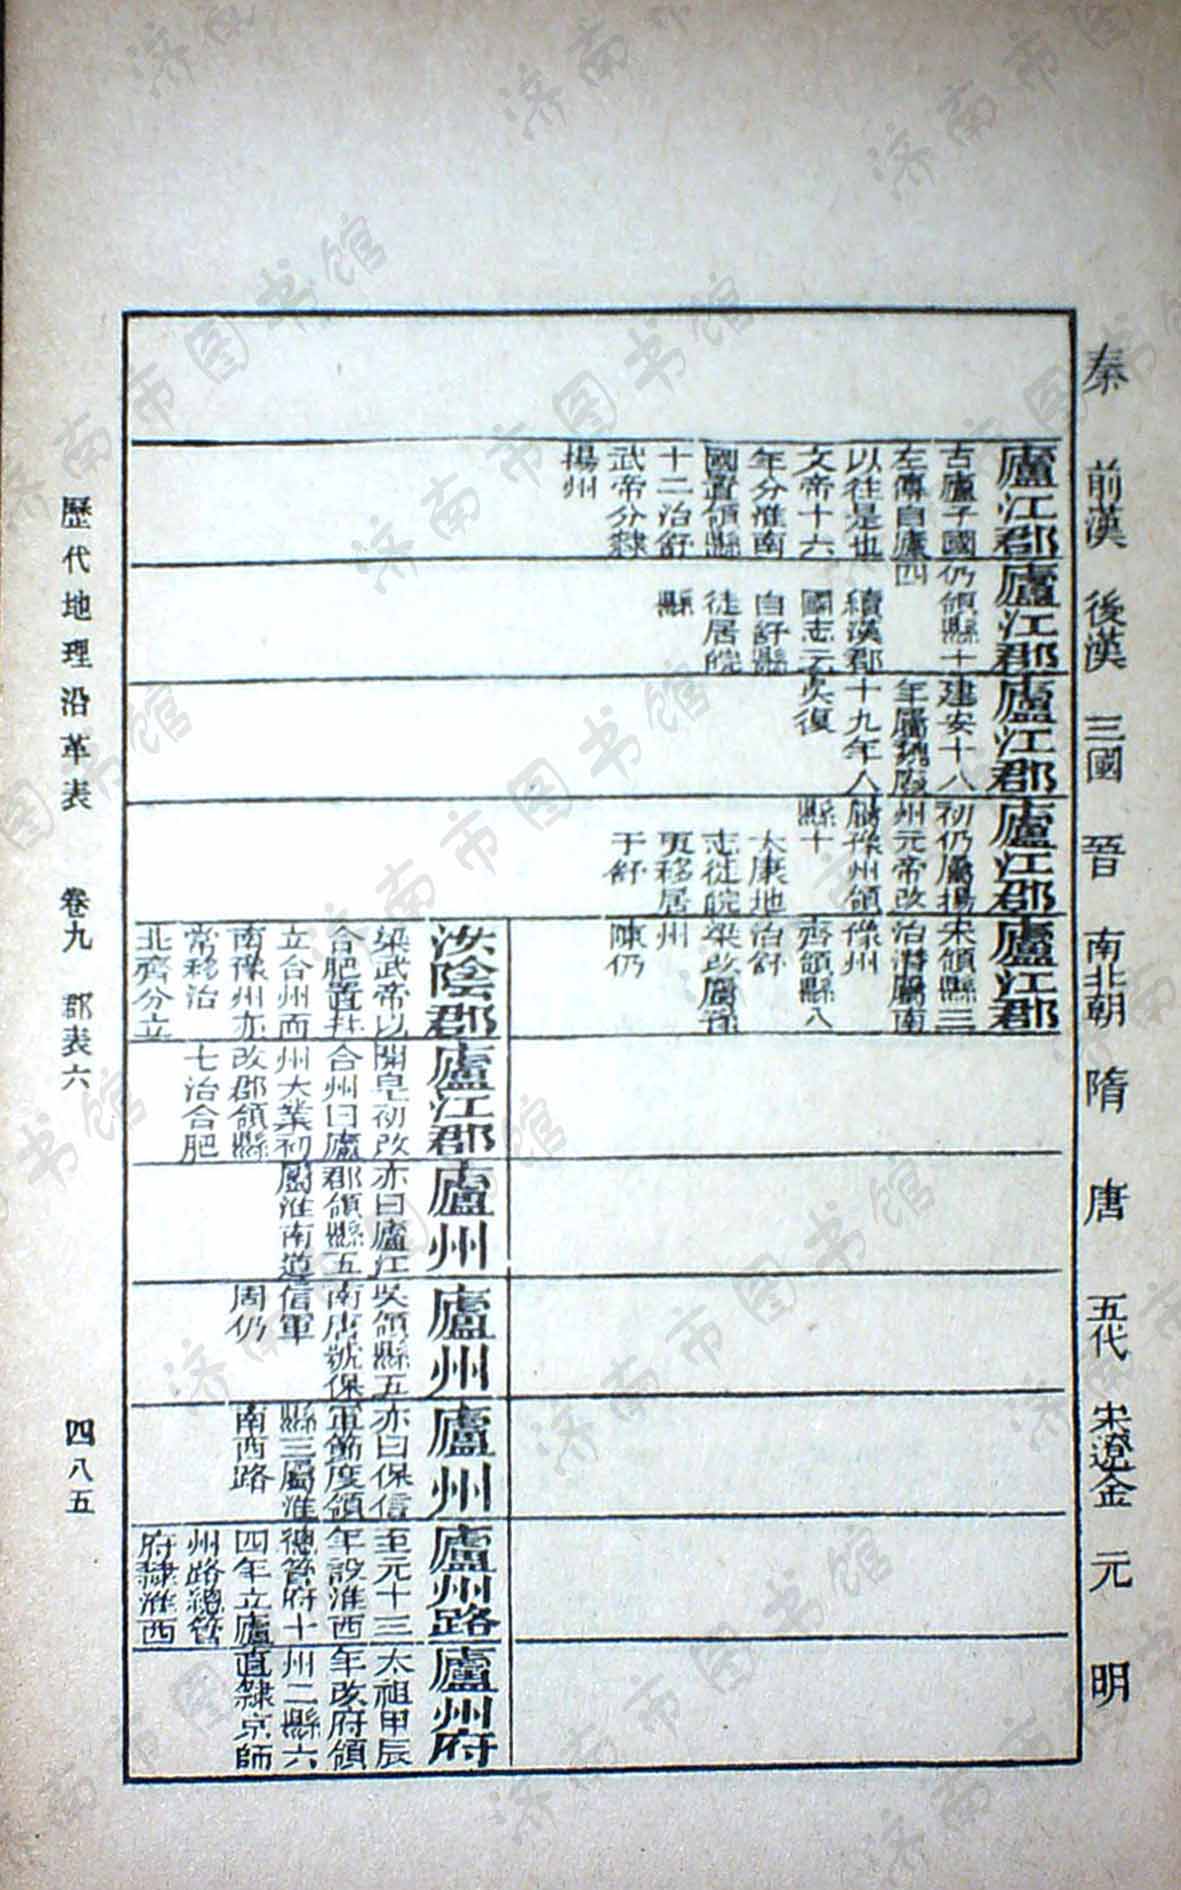 秦
前漢
後漢
三國
晉
南北朝
隋
唐
五代
宋遼金
元
明
廬江郡
古廬子國
左傳自廬
以往是也
文帝十六
年分淮南
國置領縣
十二治舒
武帝分隸
揚州
廬江郡
仍領縣十
四
續漢郡
國志云
自舒縣
徒居皖
縣
廬江郡
建安十八
年屬魏廢
十九年入
吳復
廬江郡
初仍屬揚
州元帝改
屬豫州領
縣十
太康地
志徒皖
更移居
于舒
廬江郡
宋領縣三
治灊屬南
豫州
齊領縣八
治舒
梁改屬豫
州
陳仍
汝陰郡
梁武帝以
合肥置幷
立合州而
南豫州亦
常移治
北齊分立
廬江郡
開皇初改
合州曰廬
州大業初
改郡領縣
七治合肥
廬州
亦曰廬江
郡領縣五
屬淮南道
廬州
吳領縣五
南唐號保
信軍
周仍
廬州
亦曰保信
軍節度領
縣三屬淮
南西路
廬州路
至元十三
年設淮西
總管府十
四年立廬
州路總管
府隸淮西
廬州府
太祖甲辰
年改府領
州二縣六
直隸京師
歷代地理沿革表 卷九 郡表六 四八五
济南市图书馆